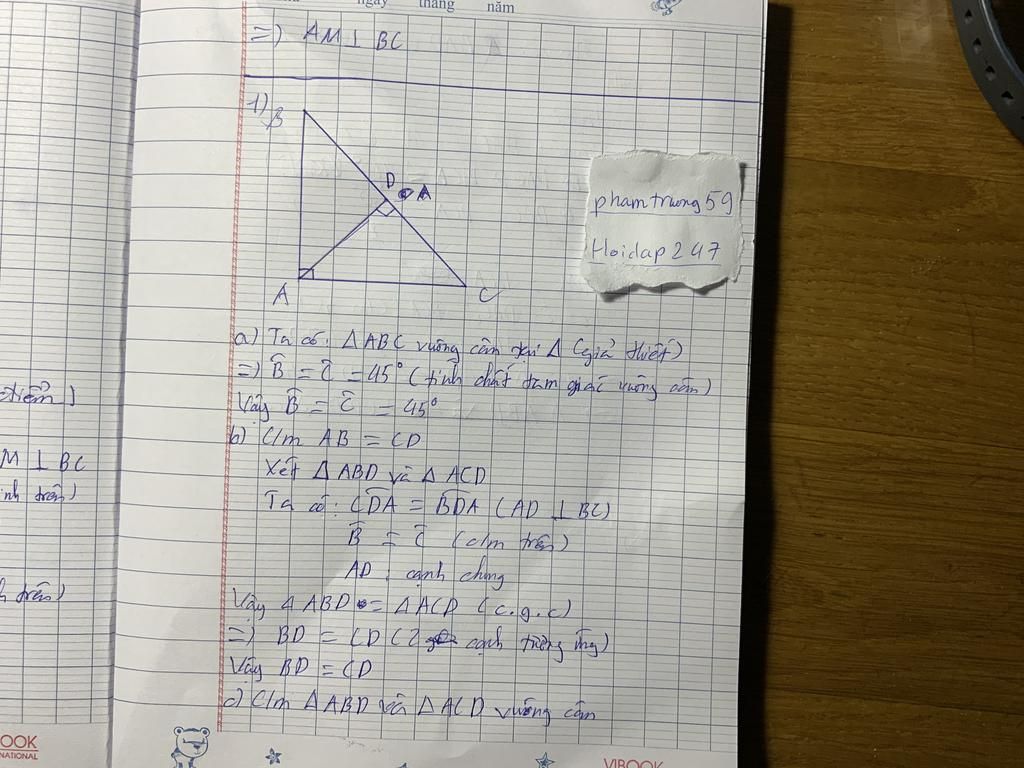 ngày tháng năm
=) AM ⊥ BC
1) B
D A
A C
phamtruong59
Hoidap247
a) Ta có: Δ ABC vuông cân tại Δ (giả thiết)
=) B̂ = Ĉ = 45° (tính chất tam giác vuông cân)
Vậy B̂ = Ĉ = 45°
b) C/m AB = CD
Xét Δ ABD và Δ ACD
Ta có: CDA = BDA (AD ⊥ BC)
B̂ = Ĉ (c/m trên)
AD: cạnh chung
Vậy Δ ABD = Δ ACD (c.g.c)
=) BD = CD (2 cạnh tương ứng)
Vậy BD = CD
c) C/m Δ ABD và Δ ACD vuông cân
điểm)
M ⊥ BC
inh trên)
h trên)
BOOK
NATIONAL
VIBOOK